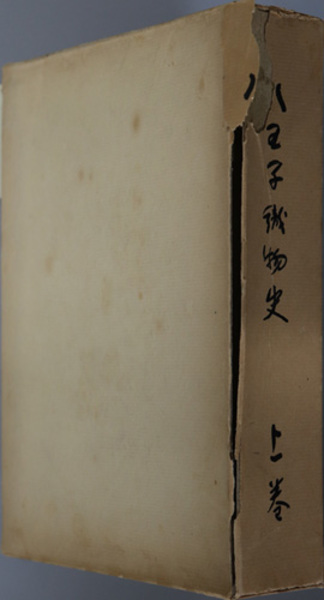 八王子織物史 上巻